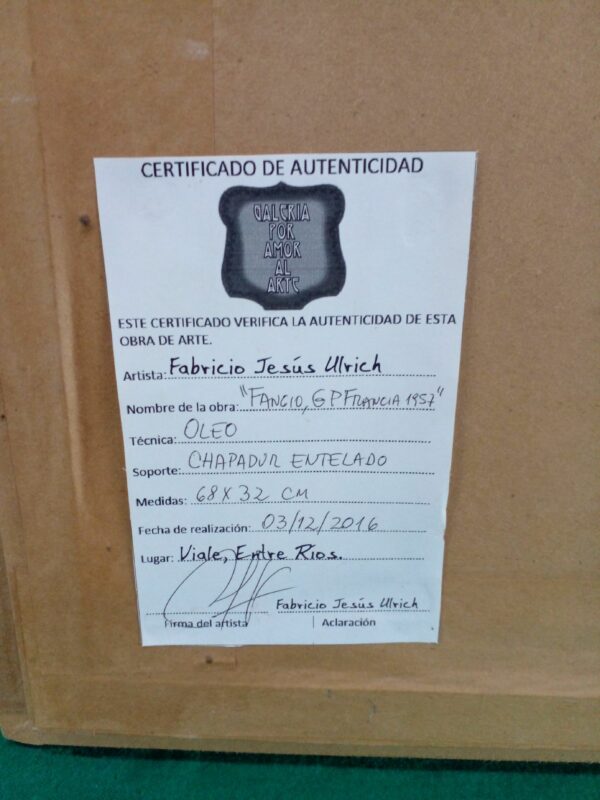 CERTIFICADO DE AUTENTICIDAD
GALERIA
POR
AMOR
AL
ARTE
ESTE CERTIFICADO VERIFICA LA AUTENTICIDAD DE ESTA
OBRA DE ARTE.
Artista: Fabricio Jesús Ulrich
Nombre de la obra: "FANGIO, GP FRANCIA 1957"
Técnica: OLEO
Soporte: CHAPADUR ENTELADO
Medidas: 68 X 32 CM
Fecha de realización: 03/12/2016
Lugar: Viale, Entre Ríos.
Fabricio Jesús Ulrich
Firma del artista | Aclaración